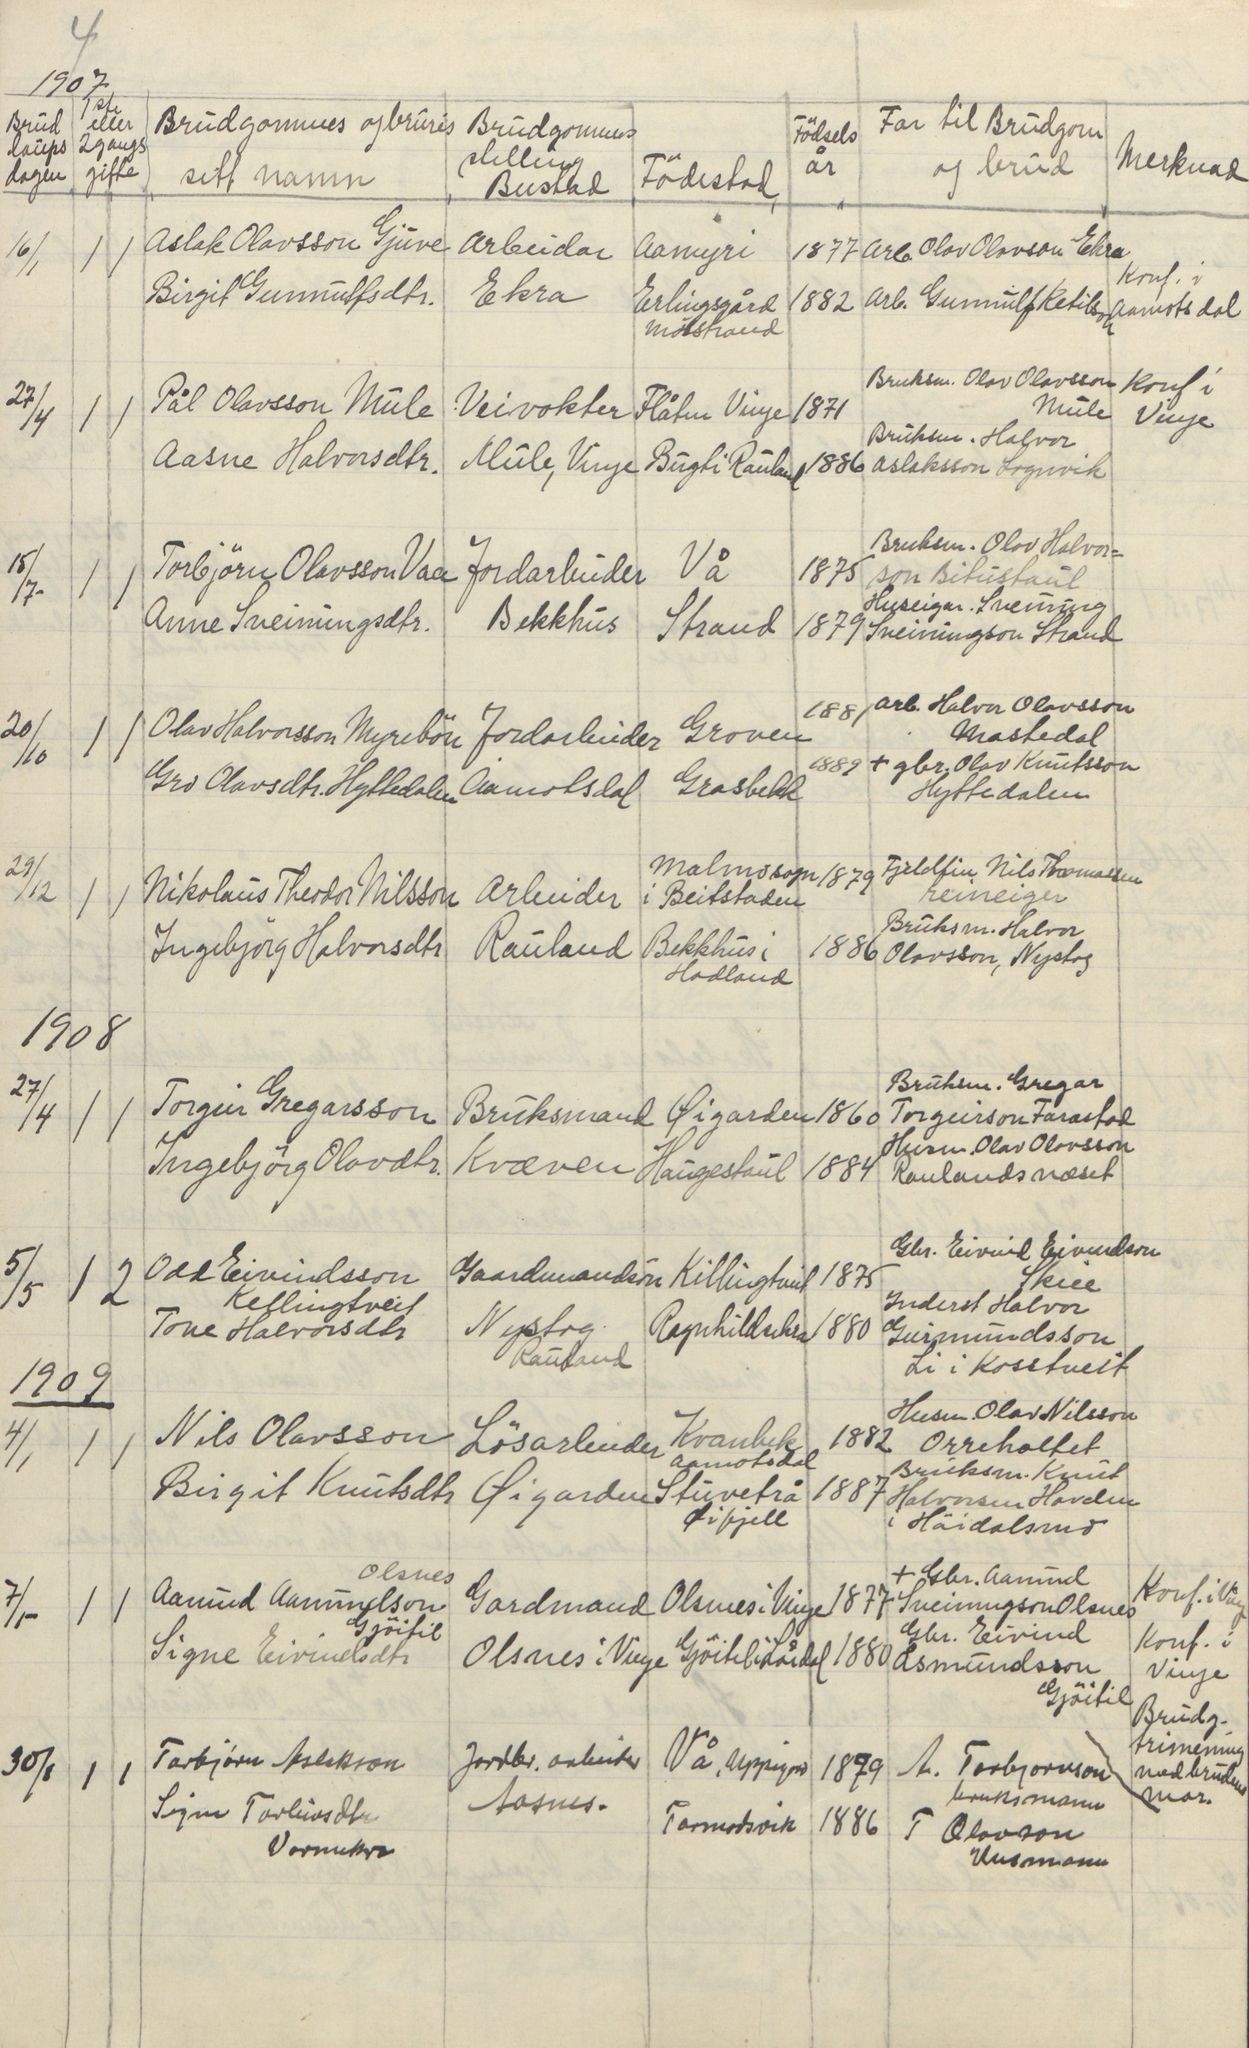 4
1907
Brud laups dagen | 1ste eller 2gangs gifte | Brudgommes og brures sett namn | Brudgommes stelling Bustad | Födestad | Födsels år | Far til Brudgom og brud | Merknad
16/1 | 1 | 1 | Aslak Olavsson Gjuve | Arbeidar | Aamyri | 1877 | Arb. Olav Olavson Ekra
Birgit Gunnulfsdtr. | Ekra | Erlingsgård Mösstrand | 1882 | Arb. Gunnulf Ketilson | Konf. i Aamotsdal
27/4 | 1 | 1 | Pål Olavsson Mule | Veivokter | Flåten Vinje | 1871 | Bruksm. Olav Olavsson Mule | Konf i Vinje
Aasne Halvorsdtr. | Mule, Vinje | Bugti Rauland | 1886 | Bruksm. Halvor Aslaksson Lognvik
15/7 | 1 | 1 | Torbjörn Olavsson Vaa | Jordarbeider | Vå | 1875 | Bruksm. Olav Halvor=son Bitustaul
Anne Sveinungsdtr. | Bekkhus | Strand | 1879 | Huseigar. Sveinung Sveinungson Strand
20/10 | 1 | 1 | Olav Halvorsson Myrebön | Jordarbeider | Groven | 1881 | Arb. Halvor Olavsson Mastedal
Gro Olavsdtr. Hyttedalen | Aamotsdal | Grasbekk | 1889 | + gbr. Olav Knutsson Hyttedalen
29/12 | 1 | 1 | Nikolaus Theodor Nilsson | Arbeider | Malmo sogn i Beitstaden | 1879 | Fjeldfin Nils Thomassen reineiger
Ingebjörg Halvorsdtr | Rauland | Bekkhus i Hadland | 1886 | Bruksm. Halvor Olavsson, Nystog
1908
27/4 | 1 | 1 | Torgeir Gregarsson | Bruksmand | Øigarden | 1860 | Bruksm. Gregar Torgeirson Farastad
Ingebjörg Olavdtr. | Kvæven | Haugestaul | 1884 | Husm. Olav Olavsson Raulandsnæset
5/5 | 1 | 2 | Odd Eivindsson Kellingtveit | Gaardmandsön | Killingtveit | 1875 | Gbr. Eivind Eivindson Skiee
Tone Halvorsdtr | Nystog Rauland | Ragnhildsekra | 1880 | Inderst Halvor Gurmundsson Li i Kosstveit
1909
4/1 | 1 | 1 | Nils Olavsson | Lösarbeider | Kvanbek Aamotsdal | 1882 | Husm. Olav Nilsson Orreholtet
Birgit Knutsdtr | Øigarden | Stuvetrå Øifjell | 1887 | Bruksm. Knut Halvorsen Hovden i Höidalsmo
7/5 | 1 | 1 | Aamund Aamundson Olsnes | Gardmand | Olsnes i Vinje | 1877 | + Gbr. Aamund Sveinungson Olsnes | Konf. i Vinje
Signe Eivindsdtr Gjöitil | Olsnes i Vinje | Gjöitil i Lårdal | 1880 | Gbr. Eivind Asmundsson Gjöitil | Konf. i Vinje
30/8 | 1 | 1 | Tarbjörn Aslakson | Jordbr. arbeider | Vå, | 1879 | A. Torbjornson bruksmann | Brudg. trimening med brudens mor.
Signe Tarleivsdtr | Aasnes. | Tormodsvik | 1886 | T Olavson Husmann